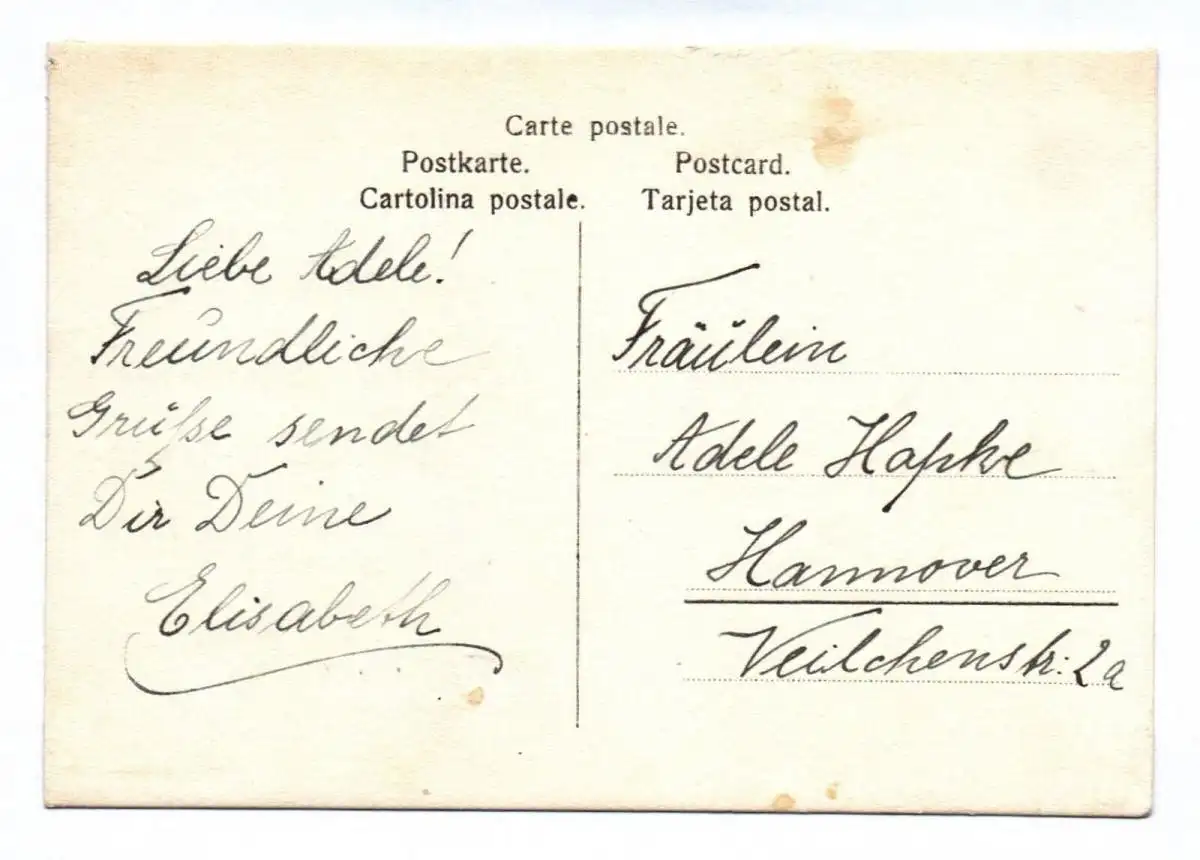 Carte postale.
Postkarte. Postcard.
Cartolina postale. Tarjeta postal.
Liebe Adele!
Freundliche
Grüße sendet
Dir Deine
Elisabeth
Fräulein
Adele Hapke
Hannover
Veilchenstr: 2a